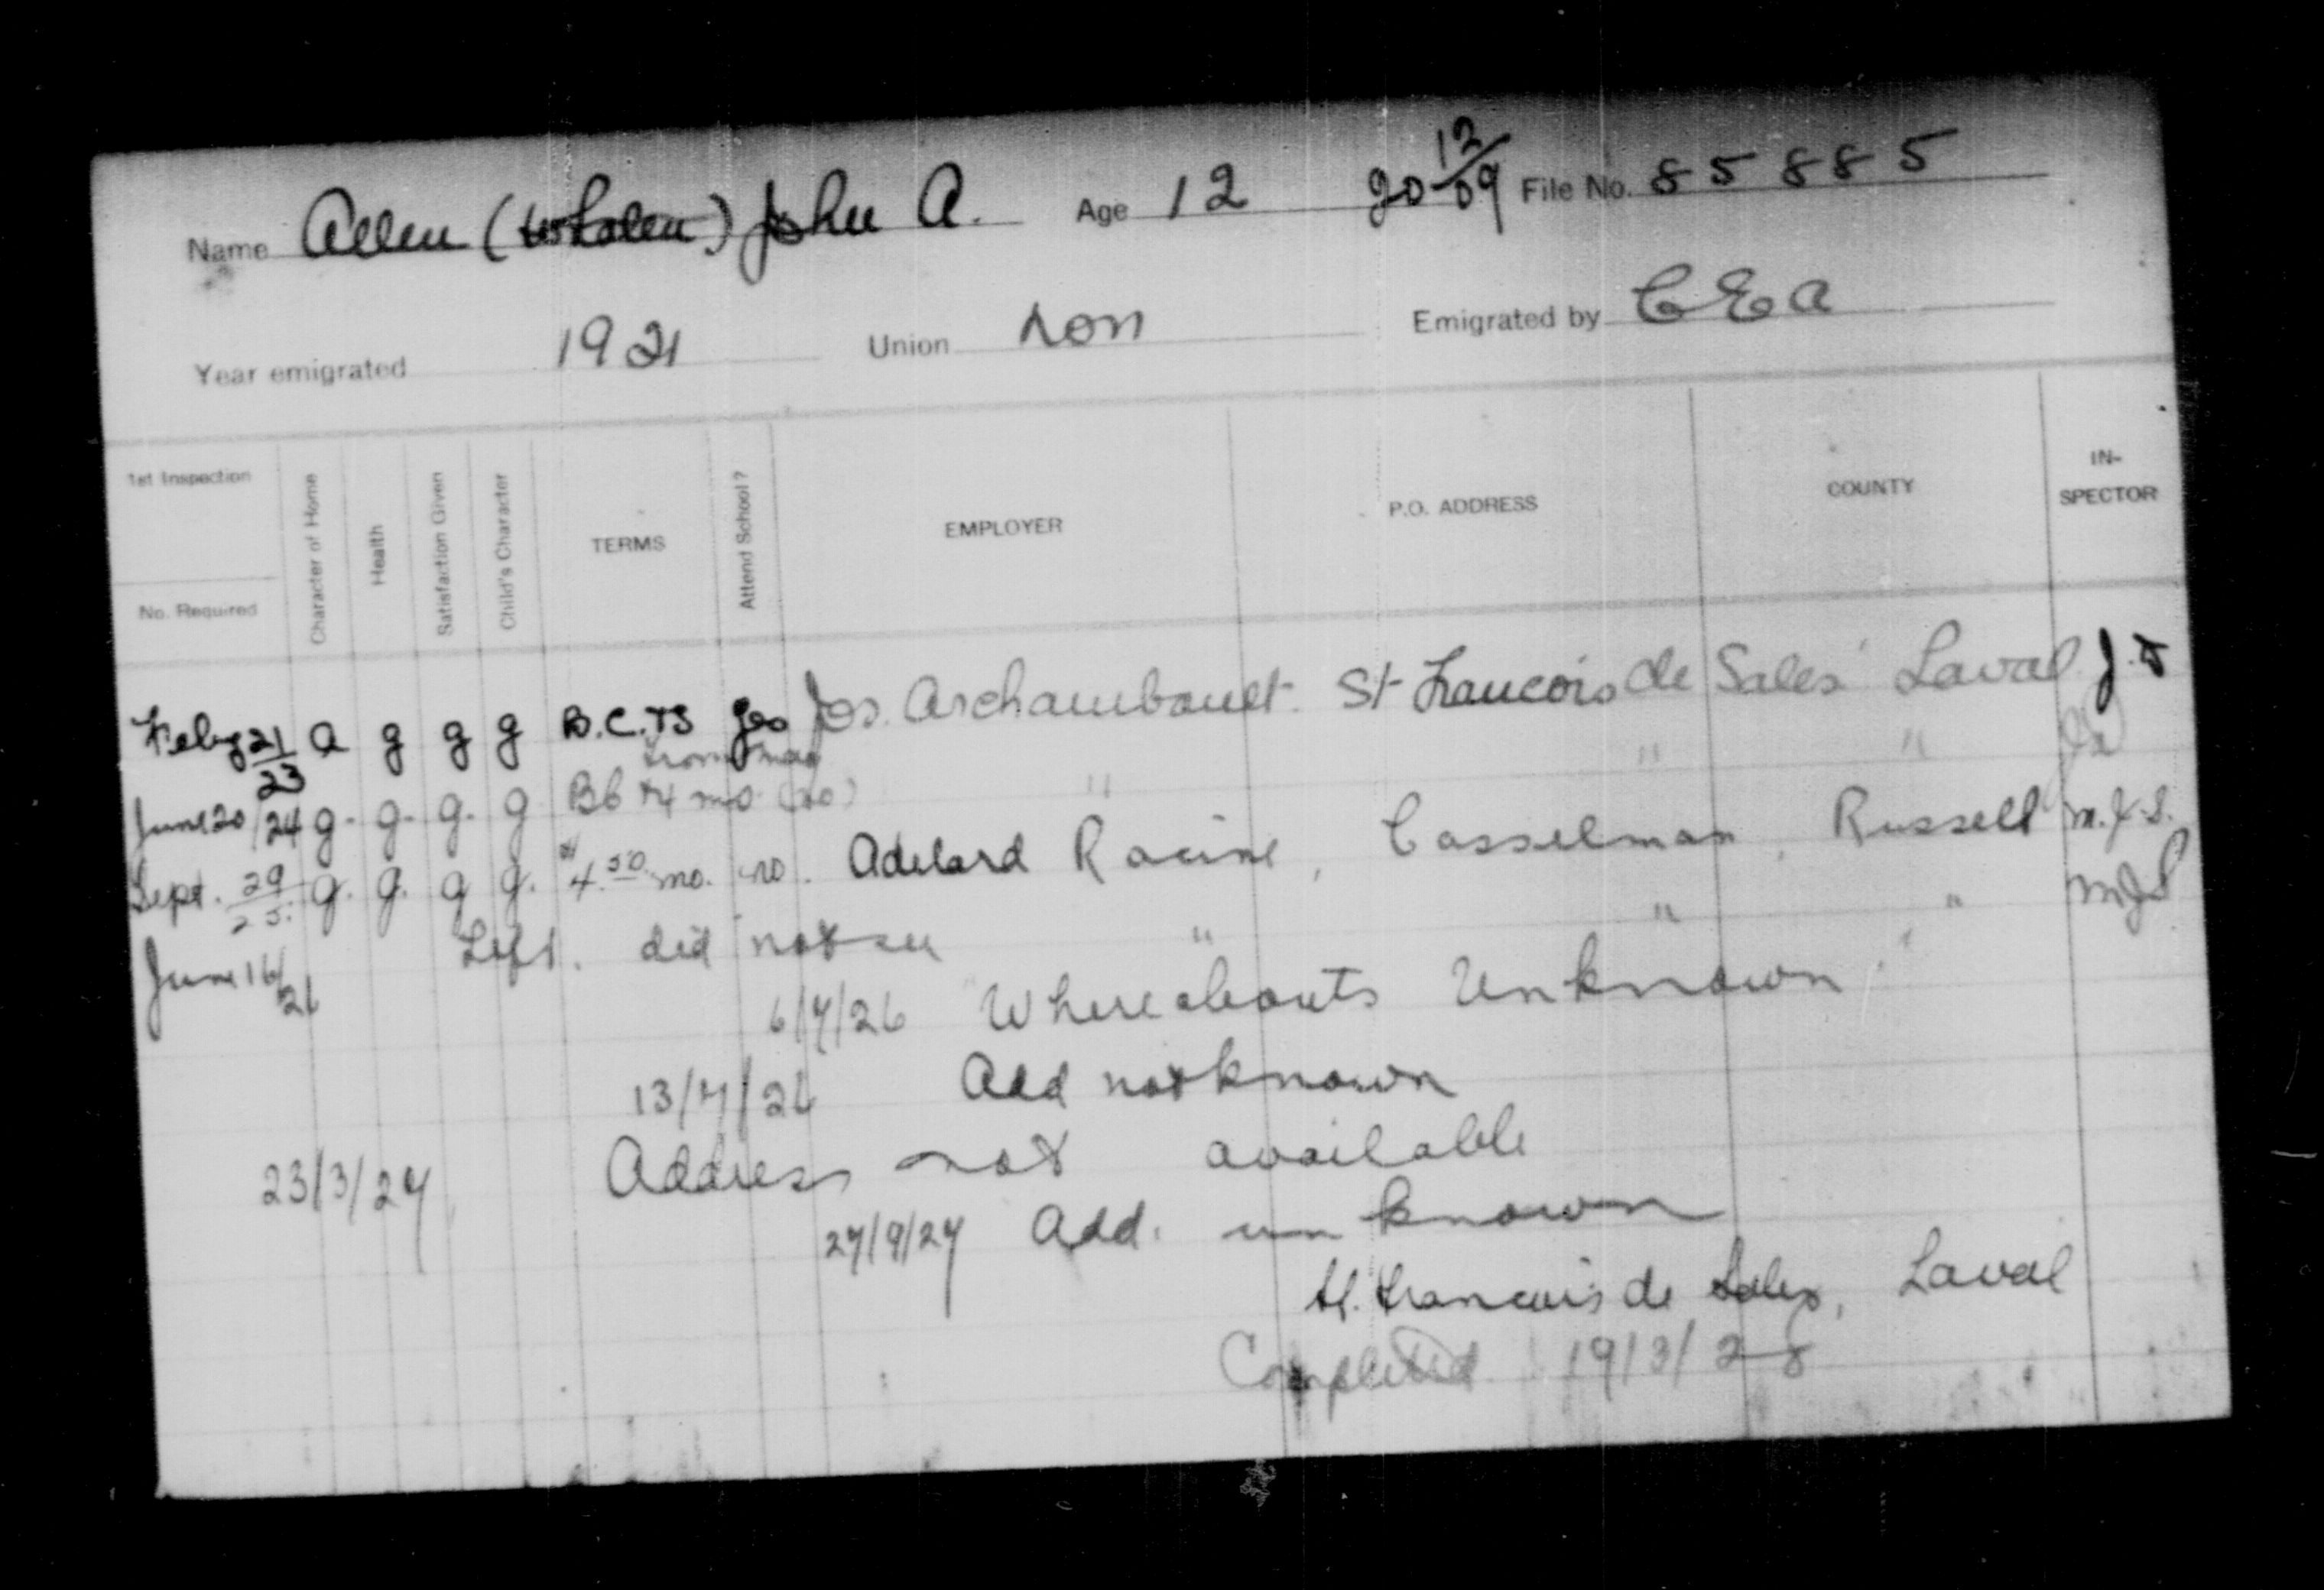 Name Allen (Whalen) John A. Age 12 20 12/09 File No. 85885
Year emigrated 1921 Union non Emigrated by CEA
1st Inspection
No. Required
Character of Home
Health
Satisfaction Given
Child's Character
TERMS
Attend School?
EMPLOYER
P.O. ADDRESS
COUNTY
IN-
SPECTOR
Feby 21/23 a g g g B.C.TS yes Jos. Archambault. St Francois de Sales Laval
from May
June 20/24 g. g. g. g B6 $4 mo. (no) " " "
Sept. 29/25. g. g. g g. $4.50 mo. no. Adelard Racine, Casselman, Russell M.J.S.
June 16/26 Left. did not see " " " MJS
6/7/26 Whereabouts Unknown
13/7/26 Add not known
23/3/27 Address not available
27/9/27 Add. unknown
St. Francois de Sales, Laval
Completed 19/3/28